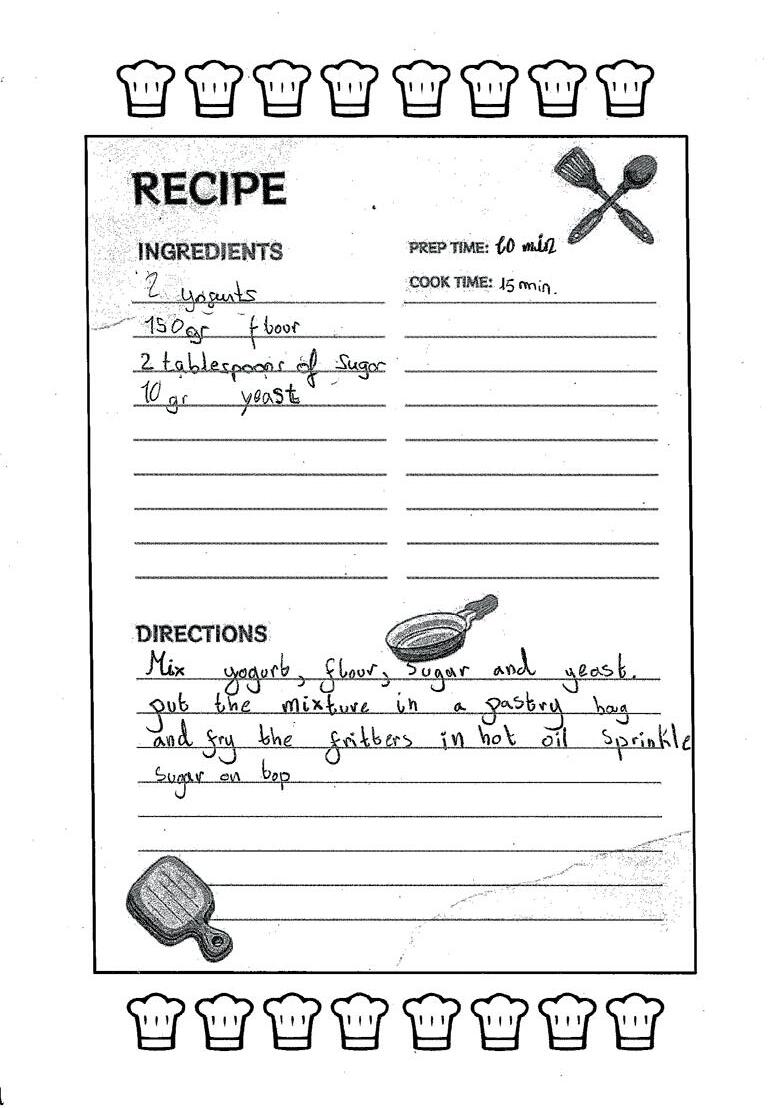 RECIPE
INGREDIENTS
2 yogurts
150gr flour
2 tablespoons of sugar
10 gr yeast
PREP TIME: 10 min
COOK TIME: 15 min.
DIRECTIONS
Mix yogurt, flour, sugar and yeast.
put the mixture in a pastry bag
and fry the fritters in hot oil sprinkle
sugar on top